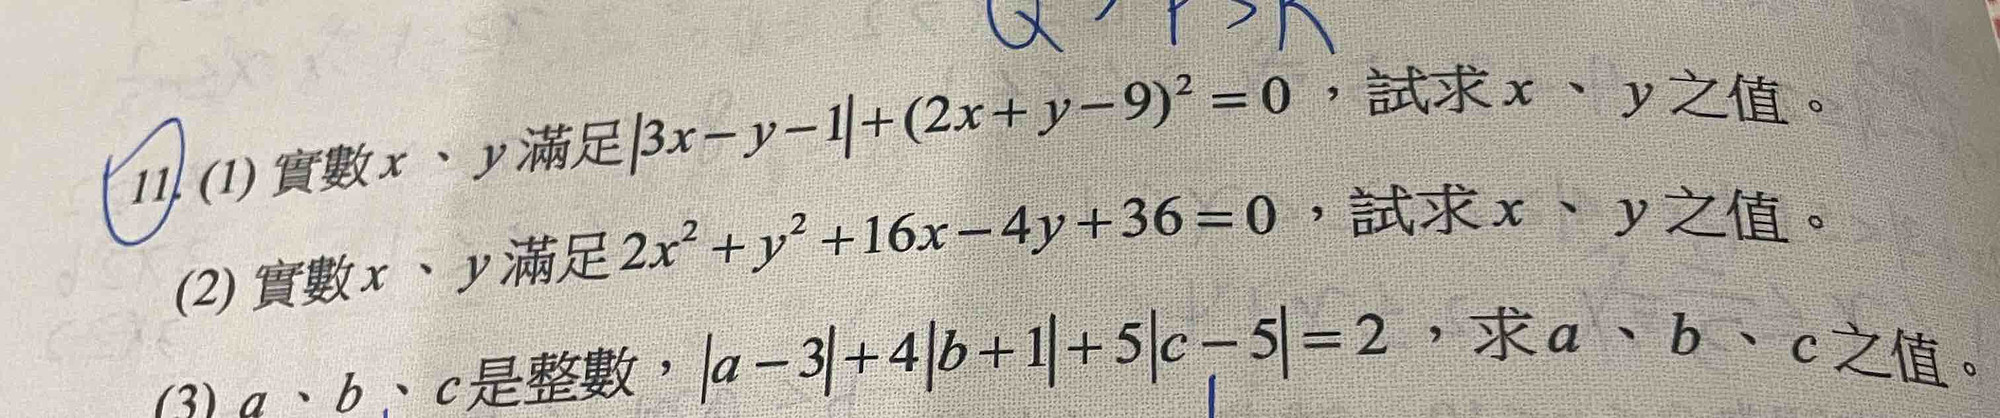 Q > P > R
11. (1) 實數x、y滿足|3x-y-1|+(2x+y-9)²=0,試求x、y之值。
(2) 實數x、y滿足2x²+y²+16x-4y+36=0,試求x、y之值。
(3) a、b、c是整數,|a-3|+4|b+1|+5|c-5|=2,求a、b、c之值。